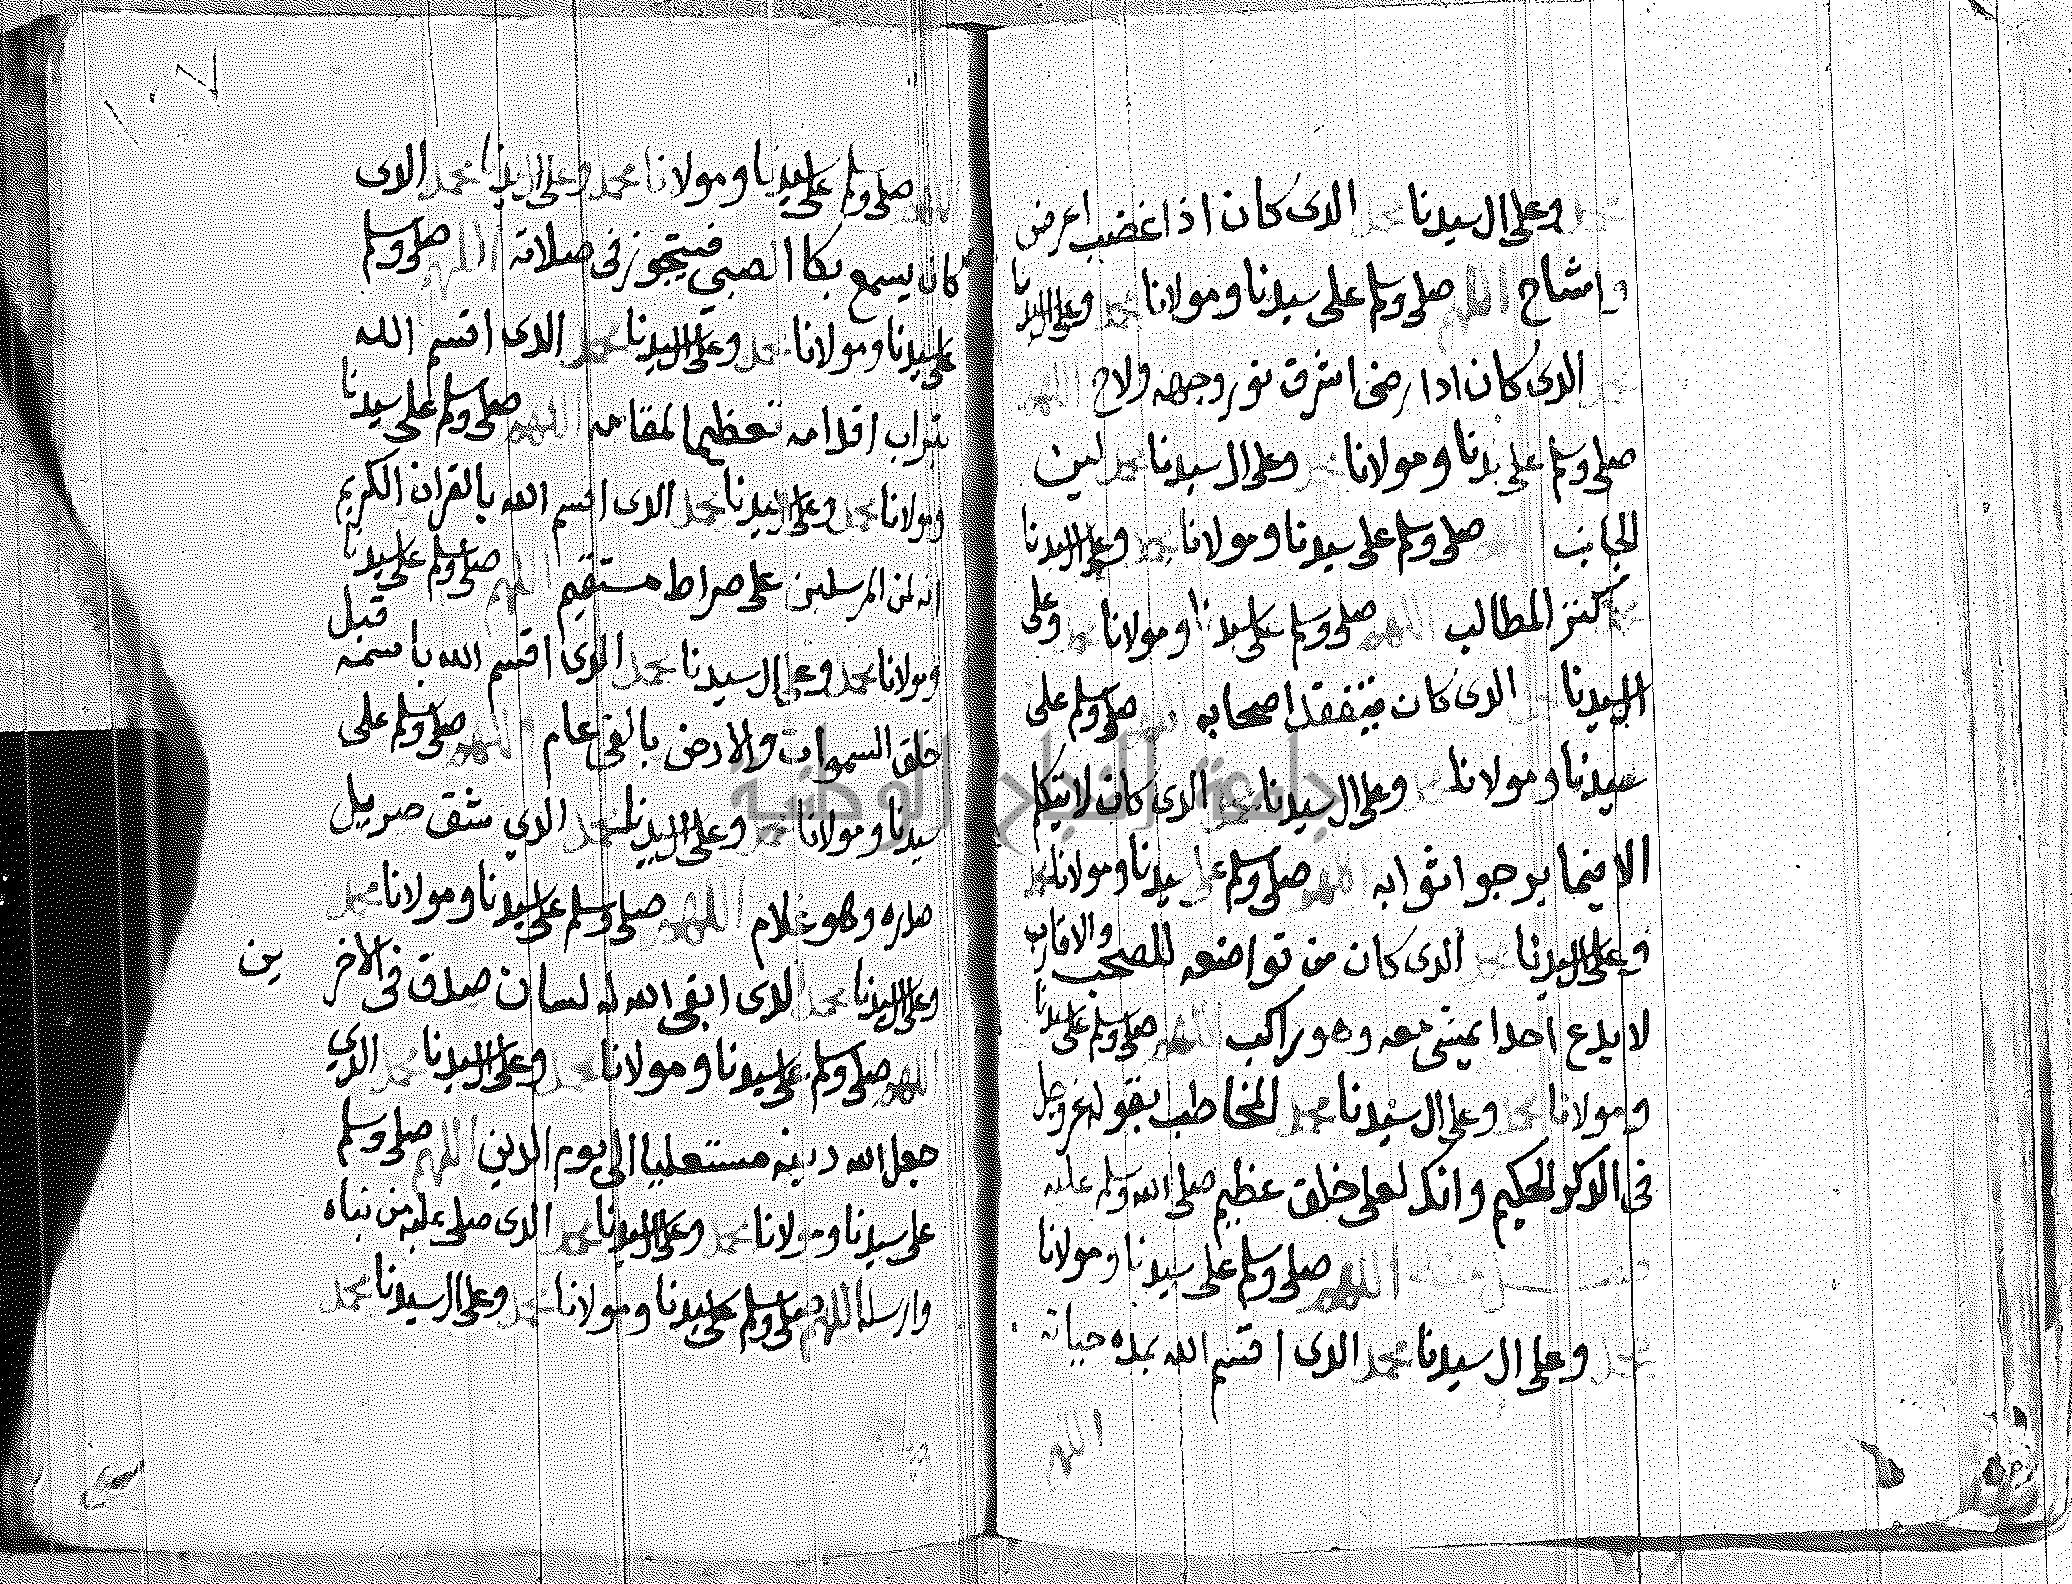 محمد وعلى ال سيدنا محمد الدى كان اذا غضب اعرض
وامشاح اللهم صلى وسلم على سيدنا ومولانا محمد وعلى ال سيدنا
محمد الدى كان ادا رضى اشرق نور وجهه ولاح اللهم
صلى وسلم على سيدنا ومولانا محمد وعلى ال سيدنا محمد لين
الجانب اللهم صلى وسلم على سيدنا ومولانا محمد وعلى ال سيدنا
محمد كنز المطالب اللهم صلى وسلم على سيدنا ومولانا محمد وعلى
ال سيدنا محمد الدى كان يتفقد اصحابه اللهم صلى وسلم على
سيدنا ومولانا محمد وعلى ال سيدنا محمد الدى كان لا يتكلم
الا فيما يرجوا ثوابه اللهم صلى وسلم على سيدنا ومولانا محمد
وعلى ال سيدنا محمد الدى كان من تواضعه للصحب والاقارب
لا يدع احدا يمشى معه وهو راكب اللهم صلى وسلم على سيدنا
ومولانا محمد وعلى ال سيدنا محمد المخاطب بقوله عز وجل
فى الدكر الحكيم وانك لعلى خلق عظيم صلى الله وسلم عليه
اللهم صلى وسلم على سيدنا ومولانا
محمد وعلى ال سيدنا محمد الدى اقسم الله بمده حياته
اللهم
اللهم صلى وسلم على سيدنا ومولانا محمد وعلى ال سيدنا محمد الدى
كان يسمع بكا الصبي فيتجوز فى صلاته اللهم صلى وسلم
على سيدنا ومولانا محمد وعلى ال سيدنا محمد الدى اقسم الله
بتراب اقدامه تعظيما لمقامه اللهم صلى وسلم على سيدنا
ومولانا محمد وعلى ال سيدنا محمد الدى اقسم الله بالقران الكريم
انه لمن المرسلين على صراط مستقيم اللهم صلى وسلم على سيدنا
ومولانا محمد وعلى ال سيدنا محمد الدى اقسم الله باسمه قبل
خلق السموات والارض بالفى عام اللهم صلى وسلم على
سيدنا ومولانا محمد وعلى ال سيدنا محمد الدي شق صريل
صدره وهو غلام اللهم صلى وسلم على سيدنا ومولانا محمد
وعلى ال سيدنا محمد الدى ابقى الله له لسان صدق فى الاخرين
اللهم صلى وسلم على سيدنا ومولانا محمد وعلى ال سيدنا محمد الدي
جعل الله دينه مستعليا الى يوم الدين اللهم صلى وسلم
على سيدنا ومولانا محمد وعلى ال سيدنا محمد الدى صلى عليه من نباه
وارسله اللهم صلى وسلم على سيدنا ومولانا محمد وعلى ال سيدنا محمد
جامعة النجاح الوطنية